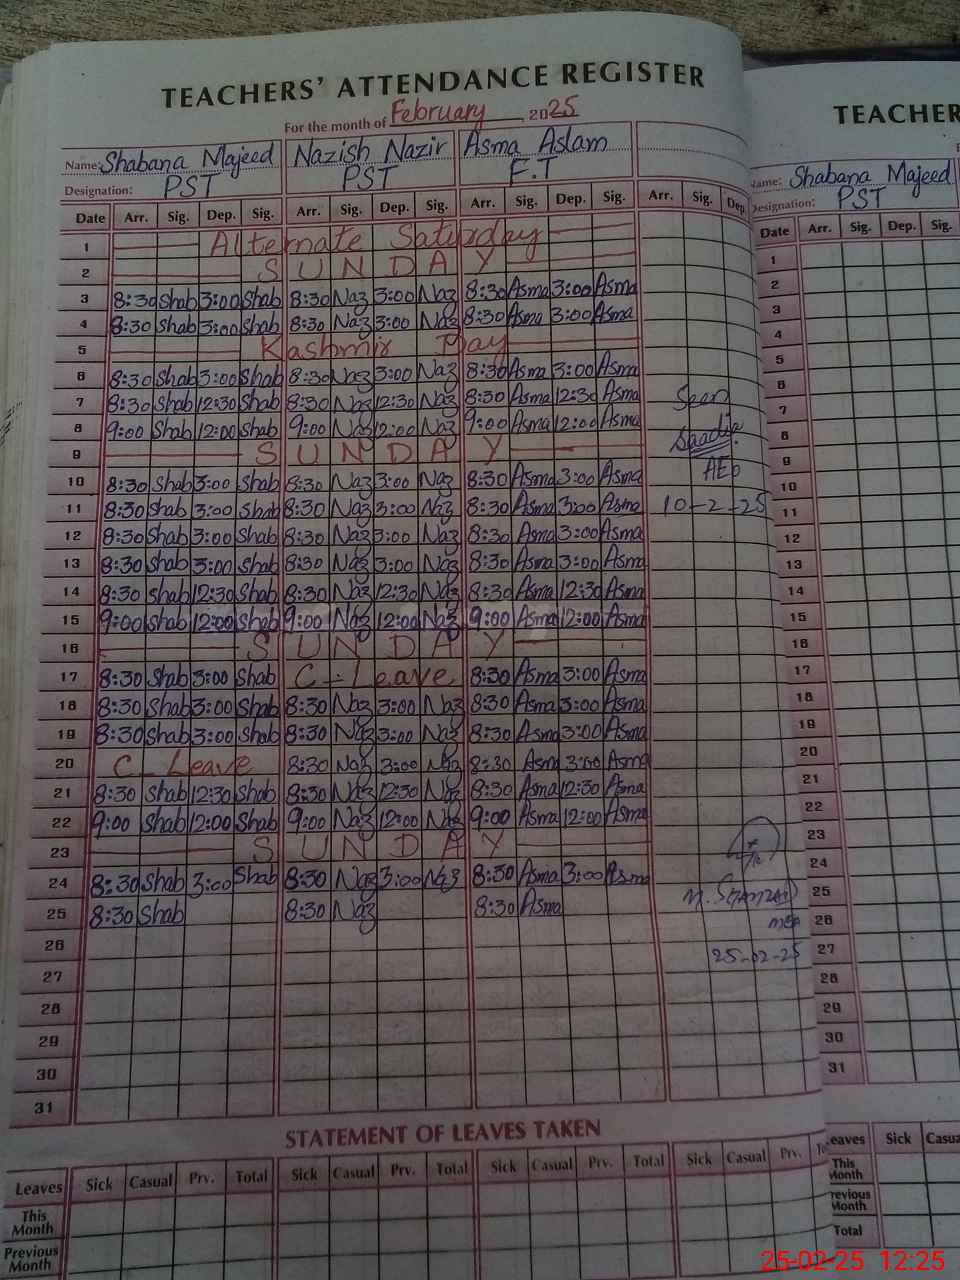 TEACHERS' ATTENDANCE REGISTER
For the month of February, 2025
Name: Shabana Majeed Nazish Nazir Asma Aslam
Designation: PST PST F.T
Date Arr. Sig. Dep. Sig. Arr. Sig. Dep. Sig. Arr. Sig. Dep. Sig. Arr. Sig. Dep.
1 Alternate Saturday
2 S U N D A Y
3 8:30 Shab 3:00 Shab 8:30 Naz 3:00 Naz 8:30 Asma 3:00 Asma
4 8:30 Shab 3:00 Shab 8:30 Naz 3:00 Naz 8:30 Asma 3:00 Asma
5 Kashmir Day
6 8:30 Shab 3:00 Shab 8:30 Naz 3:00 Naz 8:30 Asma 3:00 Asma
7 8:30 Shab 12:30 Shab 8:30 Naz 12:30 Naz 8:30 Asma 12:30 Asma Seen
8 9:00 Shab 12:00 Shab 9:00 Naz 12:00 Naz 9:00 Asma 12:00 Asma Saadia
9 S U N D A Y AEO
10 8:30 Shab 3:00 Shab 8:30 Naz 3:00 Naz 8:30 Asma 3:00 Asma
11 8:30 Shab 3:00 Shab 8:30 Naz 3:00 Naz 8:30 Asma 3:00 Asma 10-2-25
12 8:30 Shab 3:00 Shab 8:30 Naz 3:00 Naz 8:30 Asma 3:00 Asma
13 8:30 Shab 3:00 Shab 8:30 Naz 3:00 Naz 8:30 Asma 3:00 Asma
14 8:30 Shab 12:30 Shab 8:30 Naz 12:30 Naz 8:30 Asma 12:30 Asma
15 9:00 Shab 12:00 Shab 9:00 Naz 12:00 Naz 9:00 Asma 12:00 Asma
16 S U N D A Y
17 8:30 Shab 3:00 Shab C-Leave 8:30 Asma 3:00 Asma
18 8:30 Shab 3:00 Shab 8:30 Naz 3:00 Naz 8:30 Asma 3:00 Asma
19 8:30 Shab 3:00 Shab 8:30 Naz 3:00 Naz 8:30 Asma 3:00 Asma
20 C-Leave 8:30 Naz 3:00 Naz 8:30 Asma 3:00 Asma
21 8:30 Shab 12:30 Shab 8:30 Naz 12:30 Naz 8:30 Asma 12:30 Asma
22 9:00 Shab 12:00 Shab 9:00 Naz 12:00 Naz 9:00 Asma 12:00 Asma
23 S U N D A Y
24 8:30 Shab 3:00 Shab 8:30 Naz 3:00 Naz 8:30 Asma 3:00 Asma
25 8:30 Shab 8:30 Naz 8:30 Asma
26 MEA
27 25-02-25
28
29
30
31
STATEMENT OF LEAVES TAKEN
Leaves Sick Casual Prv. Total Sick Casual Prv. Total Sick Casual Prv. Total Sick Casual Prv.
This Month
Previous Month
TEACHER
Name: Shabana Majeed
Designation: PST
Date Arr. Sig. Dep. Sig.
1
2
3
4
5
6
7
8
9
10
11
12
13
14
15
16
17
18
19
20
21
22
23
24
25
26
27
28
29
30
31
Leaves Sick Casua
This Month
Previous Month
Total
25-02-25 12:25